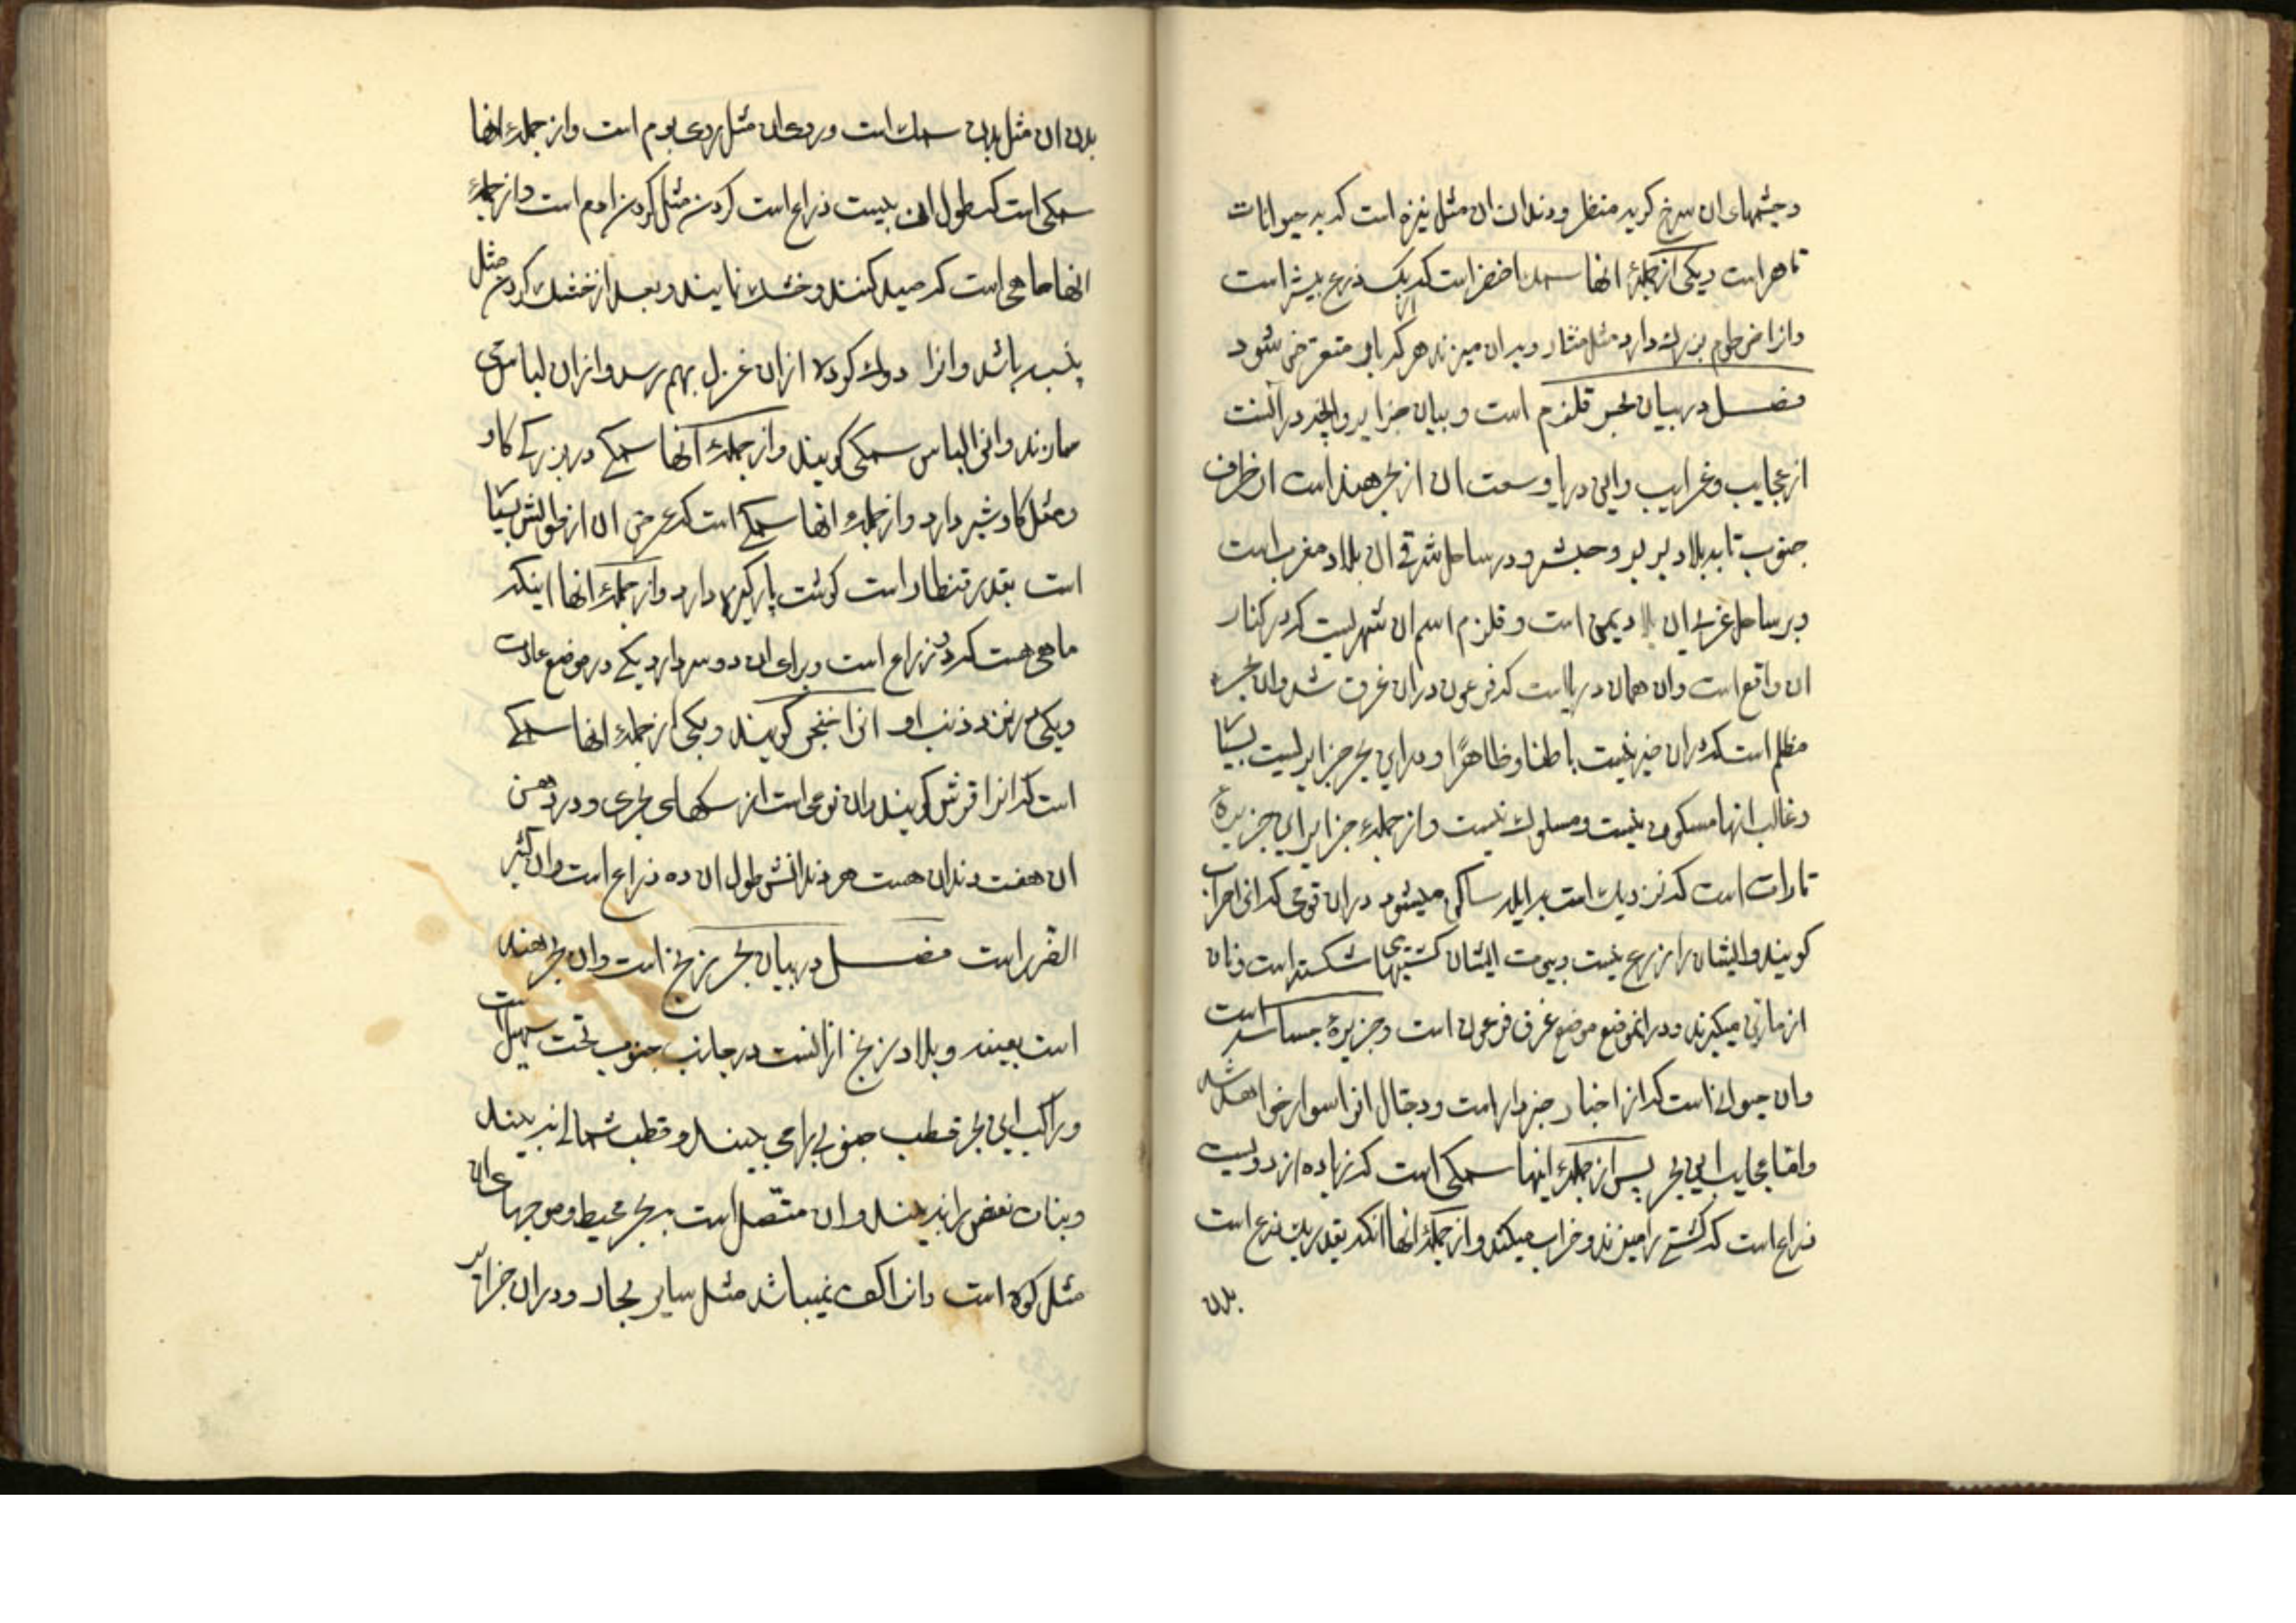 و چشمهای ان سرخ کریه منظر و دندان ان مثل نیزه است که به حیوانات
قاهر است و یکی از جملهٔ انها سمک اخضر است که از یک ذرع بیشتر است
وانرا خرطوم بزرک دارد مثل منشار و بدان میزند هر که باو متعرض شود
فصل در بیان بحر قلزم است و بیان جزایر وانچه در انست
از عجایب و غرایب واین دریا وسعت ان از بحر هند است از طرف
جنوب تا به بلاد بربر و حبشه و در ساحل شرقی ان بلاد مغرب است
و بر ساحل غربی ان بلاد یمن است و قلزم اسم ان شهریست که در کنار
ان واقع است وان همان دریااست که فرعون دران غرق شد وان بحر
مظلم است که دران خیر نیست باطنا و ظاهرًا و در این بحر جزایریست بسیا
و غالب انها مسکون نیست و مسلوک نیست و از جملهٔ جزایر این جزیرهٔ
تاران است که نزدیک است به ایله ساکن میشود دران قومی که
کویند وایشان را زرع نیست و بیوت ایشان کشتیهای شکسته است ونان
از ماتی میکیرند و در انموضع موضع غرق فرعون است وجزیرهٔ جساسه است
وان حیوانیست که از اخبار خبردار است و دجال انرا سوار خواهد شد
واما عجایب این بحر پس از جملهٔ اینها سمکی است که زیاده از دویست
ذراع است که کشتی را میزند و خراب میکند و از جملهٔ انها انکه بقدر یک ذرع است
بدن
بدن ان مثل بدن سمک است و روی ان مثل روی بوم است و از جملهٔ انها
سمکی است که طول ان بیست ذراع است کردن مثل کردن ادم است و از جملهٔ
انها ماهی است که صید کنند و خشک نمایند و بعد از خشک کردن مثل
پنبه باشد وانرا دوک کرده از ان غزل بهم رسد وازان لباس
سازند وانرا لباس سمکی کویند و از جملهٔ انها سمکی در بزرکی کاو
و مثل کاو شیر دارد و از جملهٔ انها سمکی است که عرض ان از طولش بسیا
است بقدر قنطار است کوشت پاکیزه دارد و از جملهٔ انها اینکه
ماهی هست که دو ذراع است و برای ان دو سر دارد یکی در موضع عادت
و یکی در نزد ذنب او انرا خنجر کویند و یکی از جملهٔ انها سمکی
است که انرا قرش کویند وان نوعی است از سکهای بحری و در دهن
ان هفت دندان هست هر دندانش طول ان ده ذراع است وان کثیر
الضرر است فصل در بیان بحر زنج است وان بحر هند
است بعینه و بلاد زنج ازانست در جانب جنوب تحت سهیل است
و راکب این بحر قطب جنوبی را می بیند و قطب شمالی نه بیند
و بنات نعش را نه بیند وان متصل است به بحر محیط و موجهای ان
مثل کوه است وانرا کف نمیباشد مثل سایر بحار و در ان جزایر